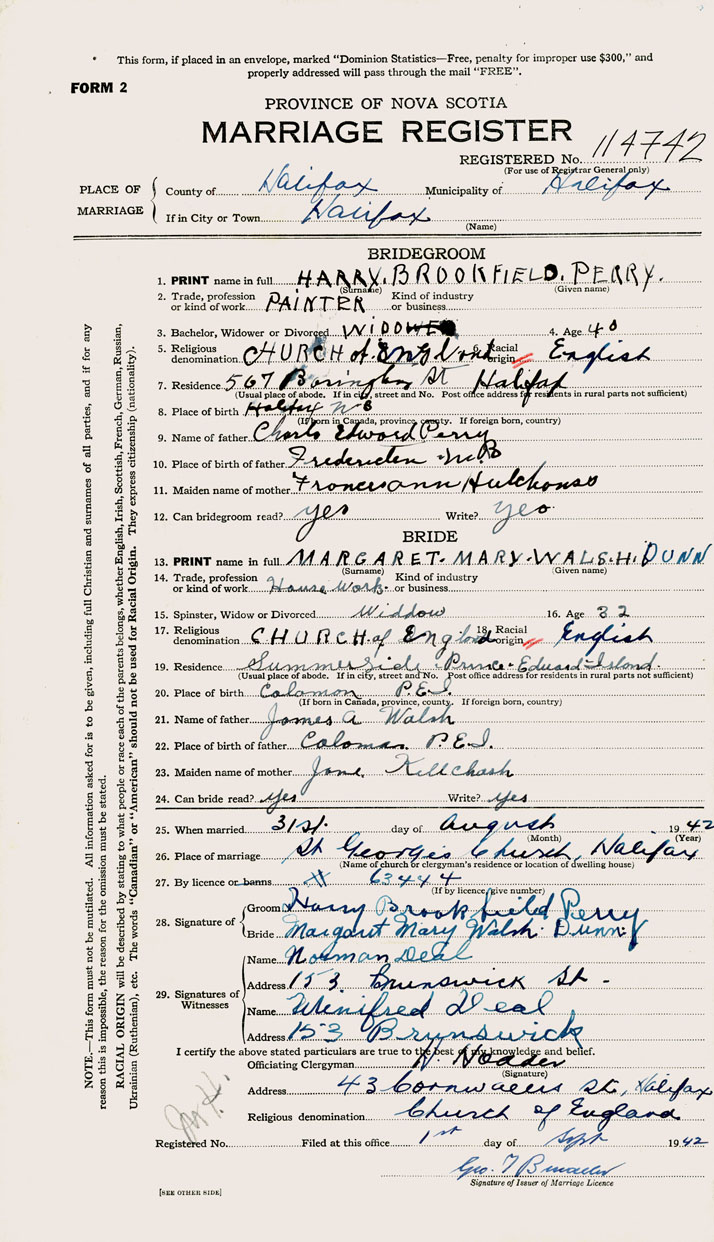 This form, if placed in an envelope, marked "Dominion Statistics—Free, penalty for improper use $300," and
properly addressed will pass through the mail "FREE".
FORM 2
PROVINCE OF NOVA SCOTIA
MARRIAGE REGISTER
REGISTERED No. 114742
(For use of Registrar General only)
PLACE OF MARRIAGE
County of Halifax Municipality of Halifax
If in City or Town Halifax
(Name)
BRIDEGROOM
1. PRINT name in full HARRY. BROOKFIELD. PERRY.
(Surname) (Given name)
2. Trade, profession or kind of work PAINTER Kind of industry or business
3. Bachelor, Widower or Divorced WIDOWER 4. Age 40
5. Religious denomination CHURCH of England 6. Racial origin English
7. Residence 567 Barington St Halifax
(Usual place of abode. If in city, street and No. Post office address for residents in rural parts not sufficient)
8. Place of birth Halifax N S
(If born in Canada, province, county. If foreign born, country)
9. Name of father Charls Edward Perry
10. Place of birth of father Fredericten N.B
11. Maiden name of mother Francis ann
12. Can bridegroom read? yes Write? yes
BRIDE
13. PRINT name in full MARGARET- MARY- WALSH. DUNN
(Surname) (Given name)
14. Trade, profession or kind of work House Work Kind of industry or business
15. Spinster, Widow or Divorced Widdow 16. Age 32
17. Religious denomination CHURCH of England 18. Racial origin English
19. Residence Summerside Prince Edward Island.
(Usual place of abode. If in city, street and No. Post office address for residents in rural parts not sufficient)
20. Place of birth Coloman P.E.I.
(If born in Canada, province, county. If foreign born, country)
21. Name of father James A Walsh
22. Place of birth of father Coloman P.E.I.
23. Maiden name of mother Jane
24. Can bride read? yes Write? yes
25. When married 31st. day of August 1942
(Month) (Year)
26. Place of marriage St George's Church, Halifax
(Name of church or clergyman's residence or location of dwelling house)
27. By licence or banns # 63444
(If by licence give number)
28. Signature of Groom Harry Brookfield Perry
Bride Margaret Mary Walsh Dunn
29. Signatures of Witnesses
Name Norman Deal
Address 153 Brunswick St -
Name Winifred Deal
Address 153 Brunswick
I certify the above stated particulars are true to the best of my knowledge and belief.
Officiating Clergyman
(Signature)
Address 43 Cornwallis St., Halifax
Religious denomination Church of England
Registered No. Filed at this office 1st day of Sept 1942
Geo. T
Signature of Issuer of Marriage Licence
[SEE OTHER SIDE]
NOTE.—This form must not be mutilated. All information asked for is to be given, including full Christian and surnames of all parties, and if for any
reason this is impossible, the reason for the omission must be stated.
RACIAL ORIGIN will be described by stating to what people or race each of the parents belongs, whether English, Irish, Scottish, French, German, Russian,
Ukrainian (Ruthenian), etc. The words "Canadian" or "American" should not be used for Racial Origin. They express citizenship (nationality).